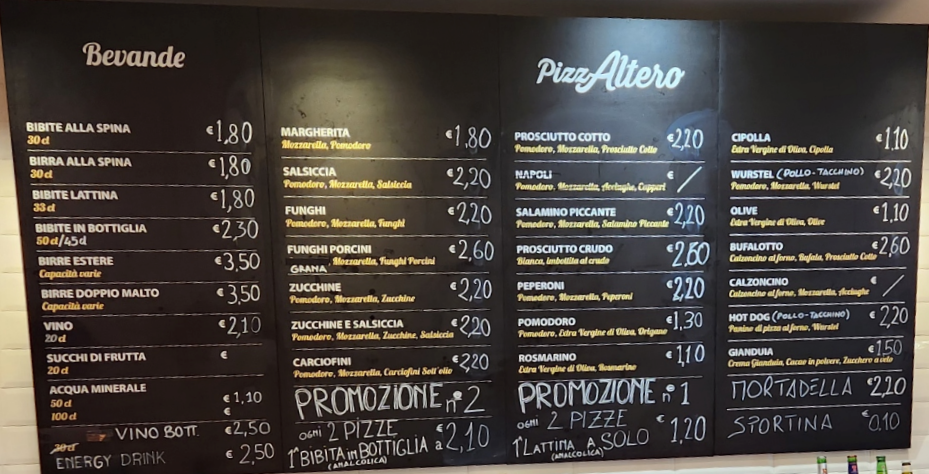 Bevande
BIBITE ALLA SPINA €1,80
30 cl
BIRRA ALLA SPINA €1,80
30 cl
BIBITE LATTINA €1,80
33 cl
BIBITE IN BOTTIGLIA €2,30
50 cl/45cl
BIRRE ESTERE €3,50
Capacità varie
BIRRE DOPPIO MALTO €3,50
Capacità varie
VINO €2,10
20 cl
SUCCHI DI FRUTTA €
20 cl
ACQUA MINERALE
50 cl €1,10
100 cl €
VINO BOTT. €2,50
30 cl
ENERGY DRINK €2,50
MARGHERITA €1,80
Mozzarella, Pomodoro
SALSICCIA €2,20
Pomodoro, Mozzarella, Salsiccia
FUNGHI €2,20
Pomodoro, Mozzarella, Funghi
FUNGHI PORCINI €2,60
GRANA Mozzarella, Funghi Porcini
ZUCCHINE €2,20
Pomodoro, Mozzarella, Zucchine
ZUCCHINE E SALSICCIA €2,20
Pomodoro, Mozzarella, Zucchine, Salsiccia
CARCIOFINI €2,20
Pomodoro, Mozzarella, Carciofini Sott'olio
PROMOZIONE n°2
OGNI 2 PIZZE
1 BIBITA in BOTTIGLIA a €2,10
(ANALCOLICA)
PizzAltero
PROSCIUTTO COTTO €2,20
Pomodoro, Mozzarella, Prosciutto Cotto
NAPOLI € /
Pomodoro, Mozzarella, Acciughe, Capperi
SALAMINO PICCANTE €2,20
Pomodoro, Mozzarella, Salamino Piccante
PROSCIUTTO CRUDO €2,60
Bianca, imbottita al crudo
PEPERONI €2,20
Pomodoro, Mozzarella, Peperoni
POMODORO €1,30
Pomodoro, Extra Vergine di Oliva, Origano
ROSMARINO €1,10
Extra Vergine di Oliva, Rosmarino
PROMOZIONE n°1
OGNI 2 PIZZE
1 LATTINA A SOLO €1,20
(ANALCOLICA)
CIPOLLA €1,10
Extra Vergine di Oliva, Cipolla
WURSTEL (POLLO-TACCHINO) €2,20
Pomodoro, Mozzarella, Wurstel
OLIVE €1,10
Extra Vergine di Oliva, Olive
BUFALOTTO €2,60
Calzoncino al forno, Bufala, Prosciutto Cotto
CALZONCINO € /
Calzoncino al forno, Mozzarella, Acciughe
HOT DOG (POLLO-TACCHINO) €2,20
Panino di pizza al forno, Wurstel
GIANDUIA €1,50
Crema Gianduia, Cacao in polvere, Zucchero a velo
MORTADELLA €2,20
SPORTINA €0,10